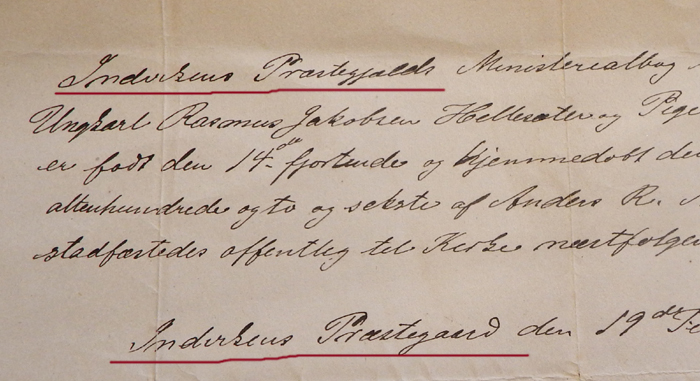 Indvikens Præstegjælds Ministerialbog
Ungkarl Rasmus Jakobsen Hellesæter og Pige
er født den 14de fjortende og hjemmedøbt de
attenhundrede og to og sekste af Anders R.
stadfæstedes offentlig til Kirke næstfølge
Indvikens Præstegaard den 19de Fe